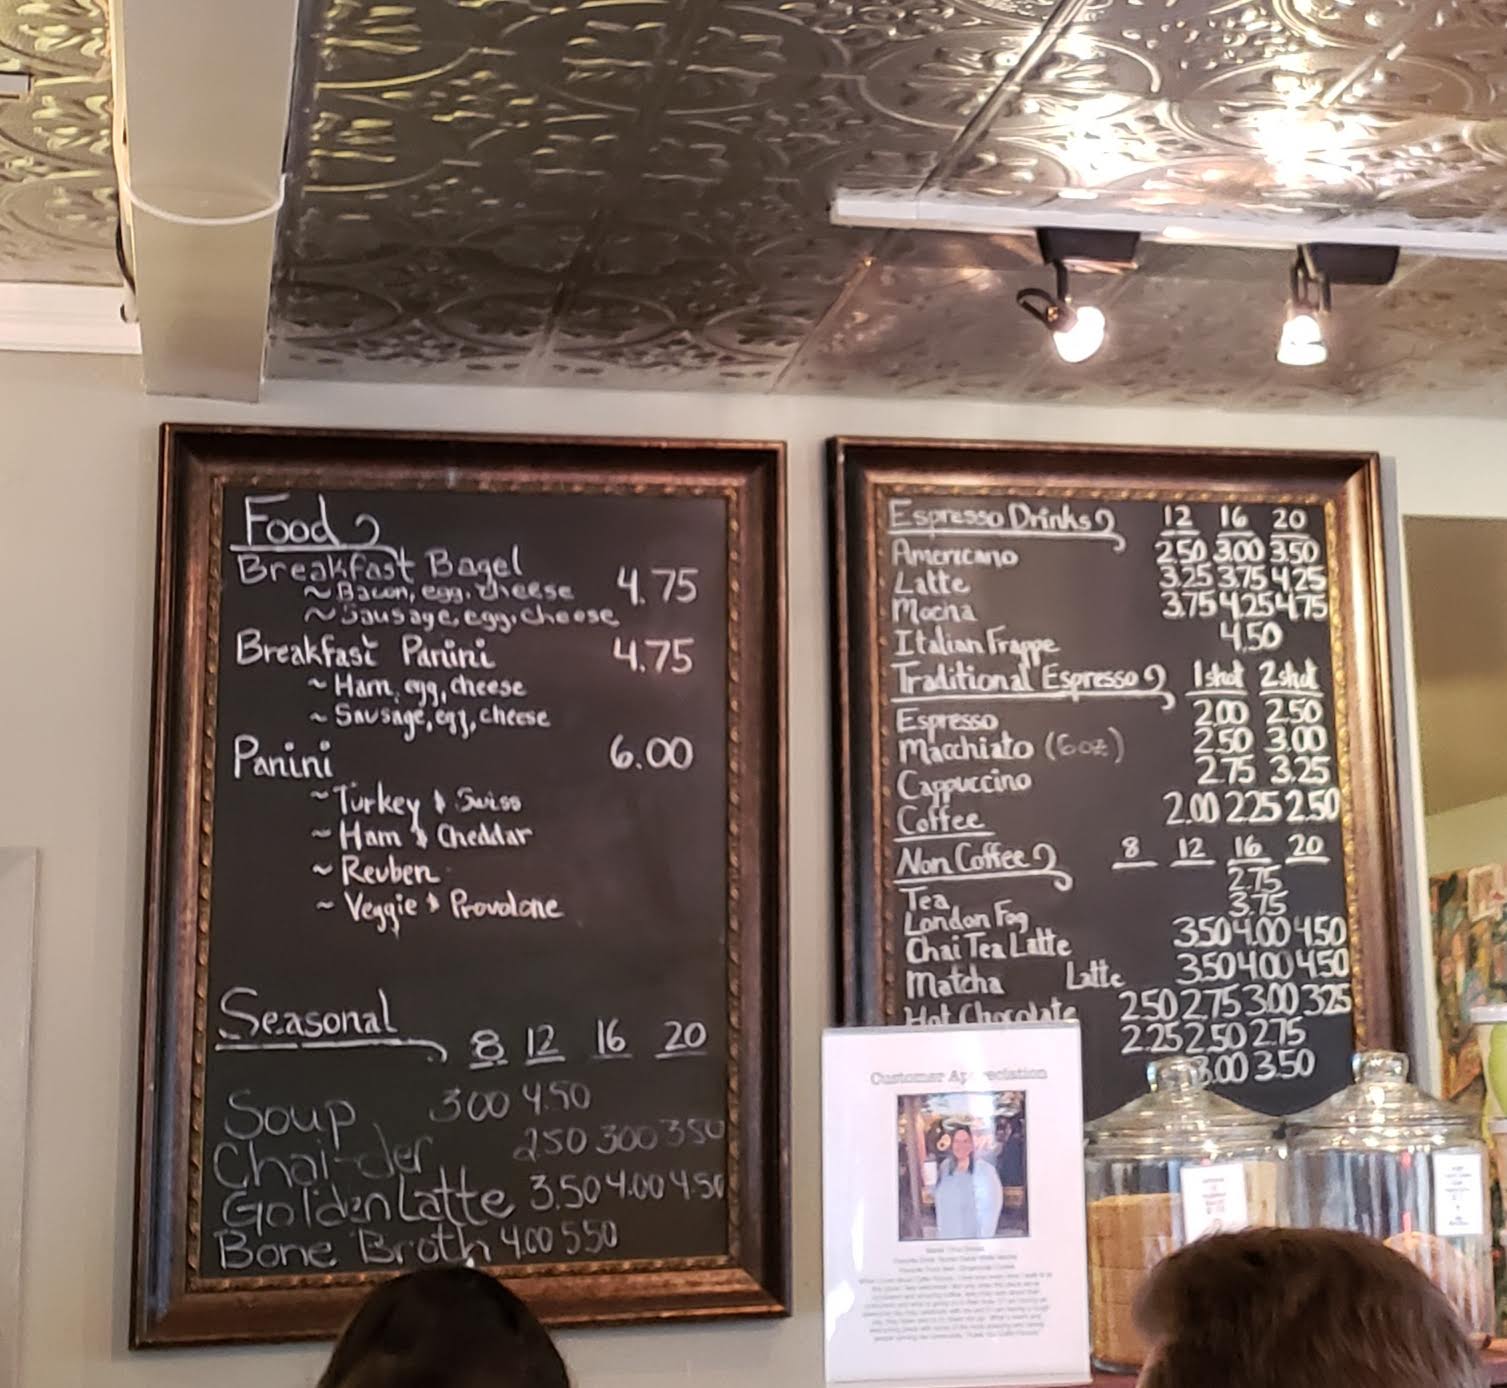 Food
Breakfast Bagel 4.75
~ Bacon, egg, cheese
~ Sausage, egg, cheese
Breakfast Panini 4.75
~ Ham, egg, cheese
~ Sausage, egg, cheese
Panini 6.00
~ Turkey & Swiss
~ Ham & Cheddar
~ Reuben
~ Veggie & Provolone
Seasonal 8 12 16 20
Soup 300 4.50
Chai-der 250 300 350
Golden Latte 3.50 4.00 4.50
Bone Broth 4.00 550
Espresso Drinks 12 16 20
Americano 250 300 3.50
Latte 3.25 3.75 4.25
Mocha 3.75 4.25 4.75
Italian Frappe 4.50
Traditional Espresso 1 shot 2 shot
Espresso 2.00 2.50
Macchiato (6oz) 2.50 3.00
Cappuccino 2.75 3.25
Coffee 2.00 2.25 2.50
Non Coffee 8 12 16 20
Tea 2.75
London Fog 3.75
Chai Tea Latte 350 4.00 450
Matcha Latte 350 400 450
Hot Chocolate 250 275 300 325
225 250 275
3.00 3.50
Customer Appreciation